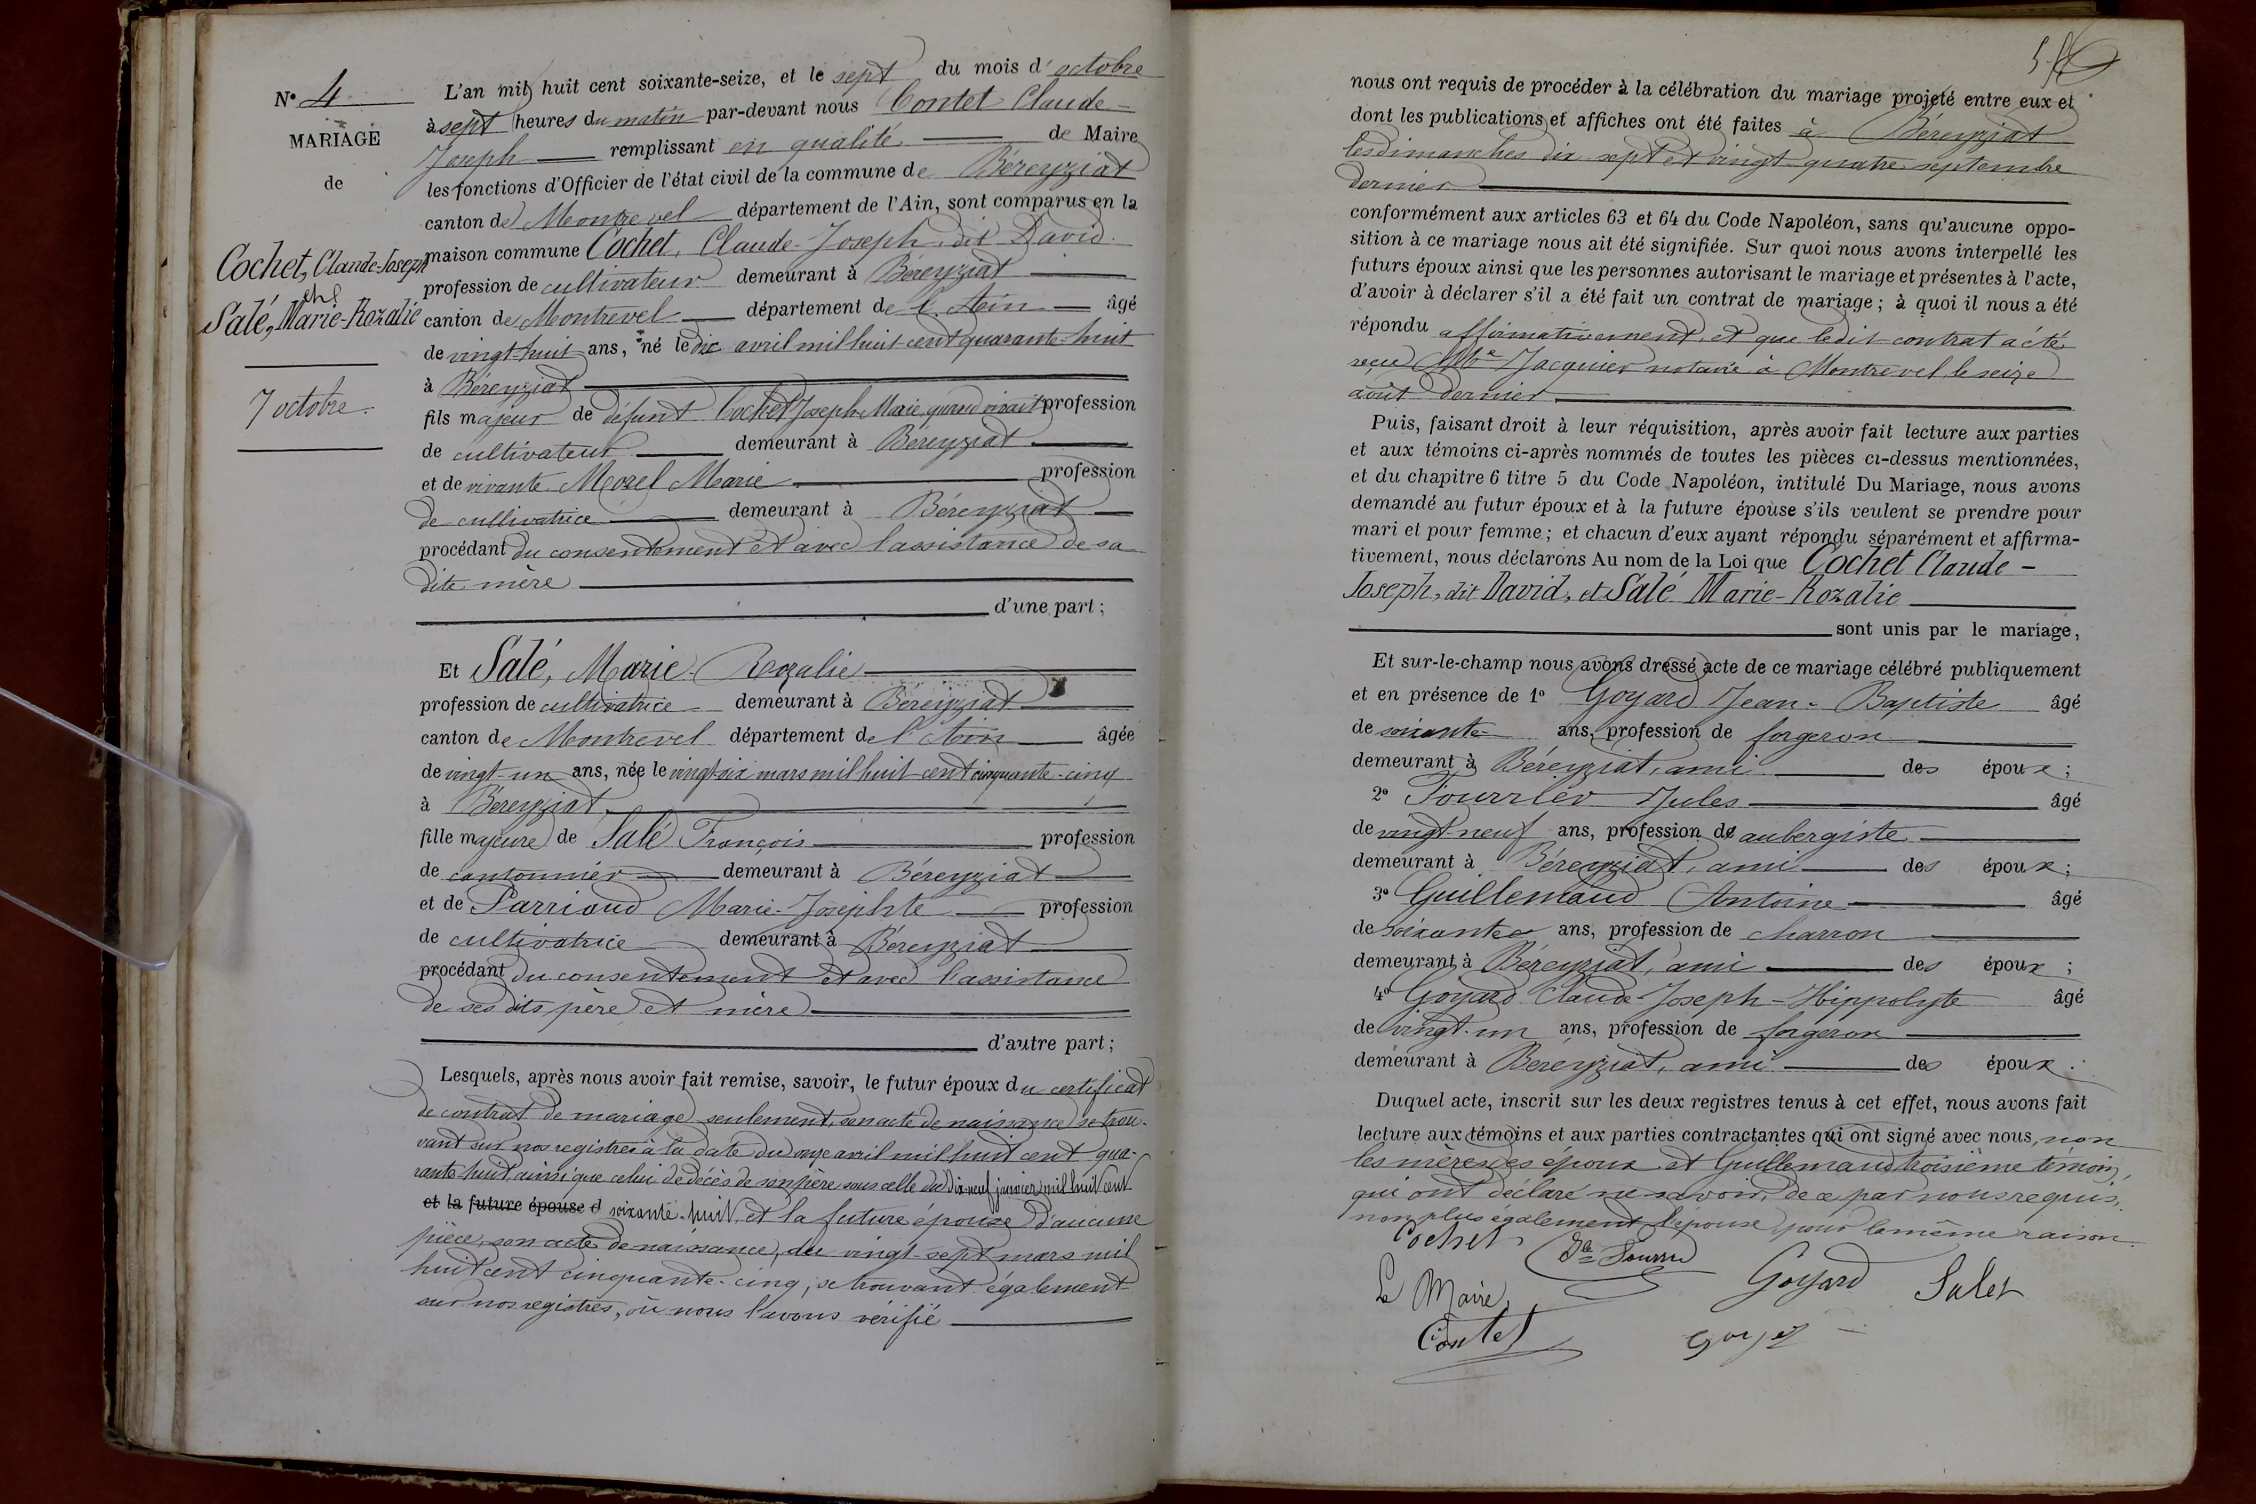 N° 4
MARIAGE
de
Cochet, Claude-Joseph
et
Salé, Marie-Rozalie
7 octobre.
L'an mil huit cent soixante-seize, et le sept du mois d'octobre
à sept heures du matin par-devant nous Contet Claude-
Joseph remplissant en qualité de Maire
les fonctions d'Officier de l'état civil de la commune de Béreyziat
canton de Montrevel département de l'Ain, sont comparus en la
maison commune Cochet, Claude-Joseph, dit David.
profession de cultivateur demeurant à Béreyziat
canton de Montrevel département de l'Ain âgé
de vingt-huit ans, né le dix avril mil huit cent quarante-huit
à Béreyziat
fils majeur de défunt Cochet Joseph-Marie, quand vivait profession
de cultivateur demeurant à Béreyziat
et de vivante Morel Marie profession
de cultivatrice demeurant à Béreyziat
procédant du consentement et avec l'assistance de sa
dite mère
d'une part;
Et Salé, Marie-Rozalie
profession de cultivatrice demeurant à Béreyziat
canton de Montrevel département de l'Ain âgée
de vingt-un ans, née le vingt-six mars mil huit-cent cinquante-cinq
à Béreyziat
fille majeure de Salé François profession
de cantonnier demeurant à Béreyziat
et de Parriaud Marie-Josephte profession
de cultivatrice demeurant à Béreyziat
procédant du consentement et avec l'assistance
de ses dits père et mère
d'autre part;
Lesquels, après nous avoir fait remise, savoir, le futur époux du certificat
de contrat de mariage seulement, son acte de naissance se trou-
vant sur nos registres à la date du onze avril mil huit cent qua-
rante-huit ainsi que celui de décès de son père sous celle du dix-neuf janvier mil huit cent
et la future épouse d soixante-huit, et la future épouse d'aucune
pièce, son acte de naissance, du vingt-sept mars mil
huit cent cinquante-cinq, se trouvant également
sur nos registres, où nous l'avons vérifié
nous ont requis de procéder à la célébration du mariage projeté entre eux et
dont les publications et affiches ont été faites à Béreyziat
les dimanches dix-sept et vingt-quatre septembre
dernier
conformément aux articles 63 et 64 du Code Napoléon, sans qu'aucune oppo-
sition à ce mariage nous ait été signifiée. Sur quoi nous avons interpellé les
futurs époux ainsi que les personnes autorisant le mariage et présentes à l'acte,
d'avoir à déclarer s'il a été fait un contrat de mariage; à quoi il nous a été
répondu affirmativement, et que ledit contrat a été
reçu Me Jacquier notaire à Montrevel, le seize
août dernier
Puis, faisant droit à leur réquisition, après avoir fait lecture aux parties
et aux témoins ci-après nommés de toutes les pièces ci-dessus mentionnées,
et du chapitre 6 titre 5 du Code Napoléon, intitulé Du Mariage, nous avons
demandé au futur époux et à la future épouse s'ils veulent se prendre pour
mari et pour femme; et chacun d'eux ayant répondu séparément et affirma-
tivement, nous déclarons Au nom de la Loi que Cochet Claude-
Joseph, dit David, et Salé Marie-Rozalie
sont unis par le mariage,
Et sur-le-champ nous avons dressé acte de ce mariage célébré publiquement
et en présence de 1° Goyard Jean-Baptiste âgé
de soixante ans, profession de forgeron
demeurant à Béreyziat, ami des époux;
2° Fourrier Jules âgé
de vingt-neuf ans, profession de aubergiste
demeurant à Béreyziat, ami des époux;
3° Guillemaud Antoine âgé
de soixante ans, profession de charron
demeurant à Béreyziat, ami des époux;
4° Goyard Claude-Joseph-Hippolyte âgé
de vingt-un ans, profession de forgeron
demeurant à Béreyziat, ami des époux.
Duquel acte, inscrit sur les deux registres tenus à cet effet, nous avons fait
lecture aux témoins et aux parties contractantes qui ont signé avec nous, non
les mères des époux et Guillemaud troisième témoin,
qui ont déclaré ne savoir, de ce par nous requis,
non plus également l'épouse pour le même raison.
Cochet
Goyard Salet
Le Maire,
Contet